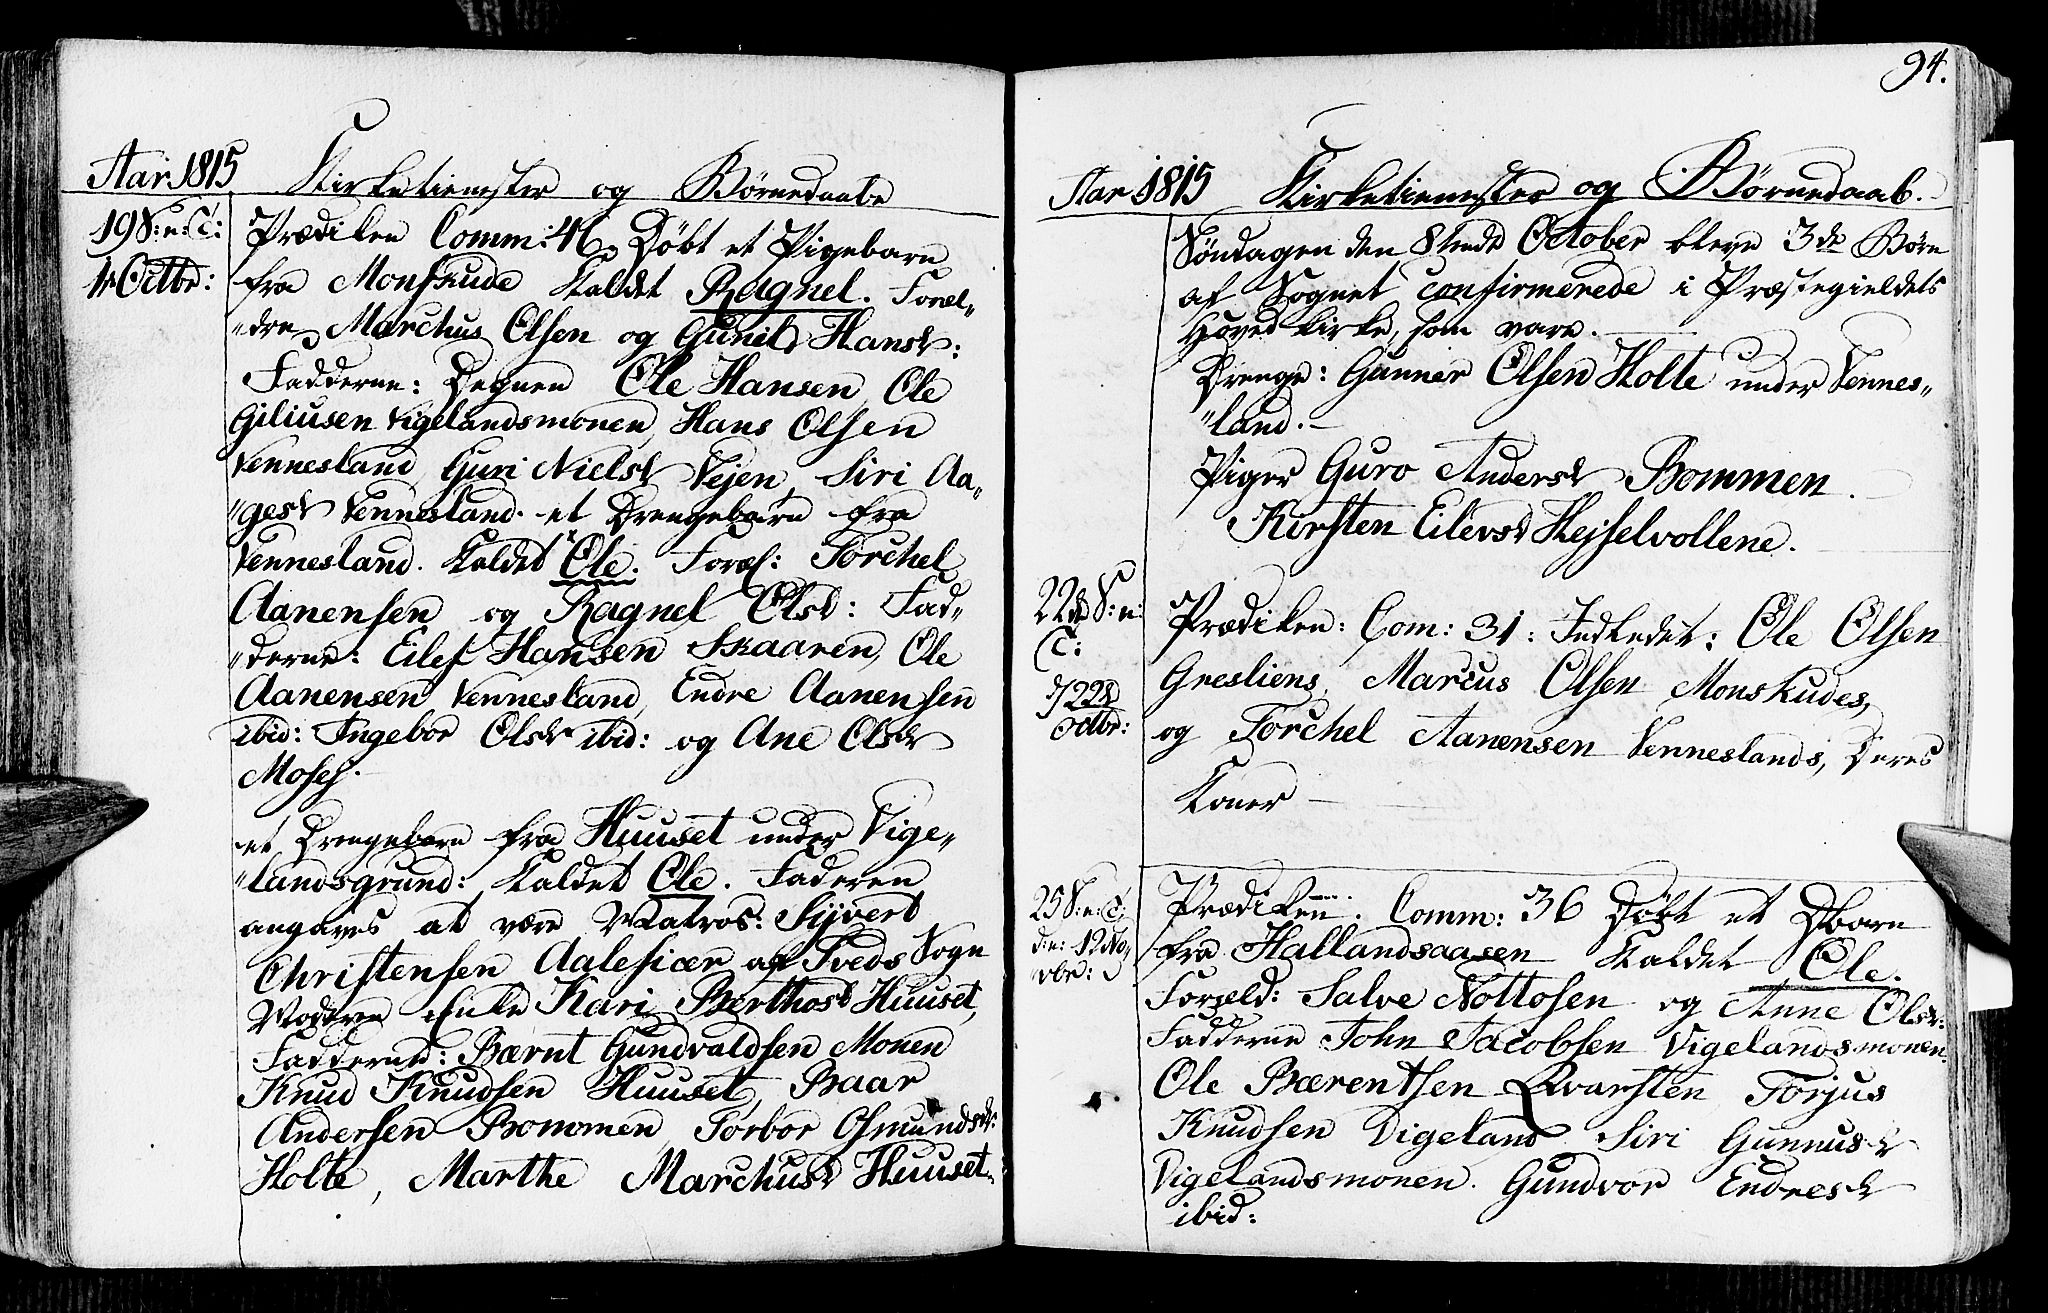 Aar 1815 Kirketienester og Børnedaabe
19 S: n: T: Prædiken Comm: 41. Døbt et Pigebarn
1 Octbr: fra Monskude kaldet Ragnel. Foræl„
„dre Marchus Olsen og Gunild Hansd:
Fadderne: Degnen Ole Hansen, Ole
Giliusen Vigelandsmonen, Hans Olsen
Vennesland, Guri Nielsd Vejen, Siri Aa„
„gesd Vennesland. et Drengebarn fra
Vennesland. kaldet Ole. Foræl: Torchel
Aanensen og Ragnel Olsd: Fad„
„derne: Eilef Hansen Skaaren, Ole
Aanensen Vennesland, Endre Aanensen
ibid: Ingebor Olsd ibid: og Ane Olsd
Moseh.
et Drengebarn fra Huuset under Vige„
„landsgrund: kaldet Ole. Faderen
angaves at være Matros: Sijvert
Christensen Aalefiær af Tveds Sogn
Moderen Enke Kari Berthosd Huuset,
Fadderne: Bærnt Gundvaldsen Monen
Knud Knudsen Huuset, Baar
Andersen Bommen, Torbor Osmundsd:
Holte, Marthe Marchusd Huuset.
94.
Aar 1815 Kirketienester og Børnedaab.
Søndagen den 8tende October bleve 3de Børn
af Sognet confirmerede i Præstegieldets
Hoved Kirke, som vare.
Drenge: Gunner Olsen Holte under Vennes„
„land.
Piger Guro Andersd Bommen.
Kirsten Eilevsd Hejselvollene.
22de S: n: Prædiken: Com: 31: Indledet: Ole Olsen
T:
Gresliens, Marcus Olsen Monskudes,
22de
Octbr: og Torchel Aanensen Venneslands, Deres
Koner
25 S: n: T: Prædiken. Comm: 36 Døbt et Dbarn
d: n: 12 No„ fra Hallandsaasen kaldet Ole.
vbr: Foræld: Salve Nottosen og Anne Olsd:
Fadderne John Jacobsen Vigelandsmonen.
Ole Bærentsen Qvarsten, Torjus
Knudsen Vigeland Siri Gunnusd
Vigelandsmonen. Gundvor Endresd
ibid: